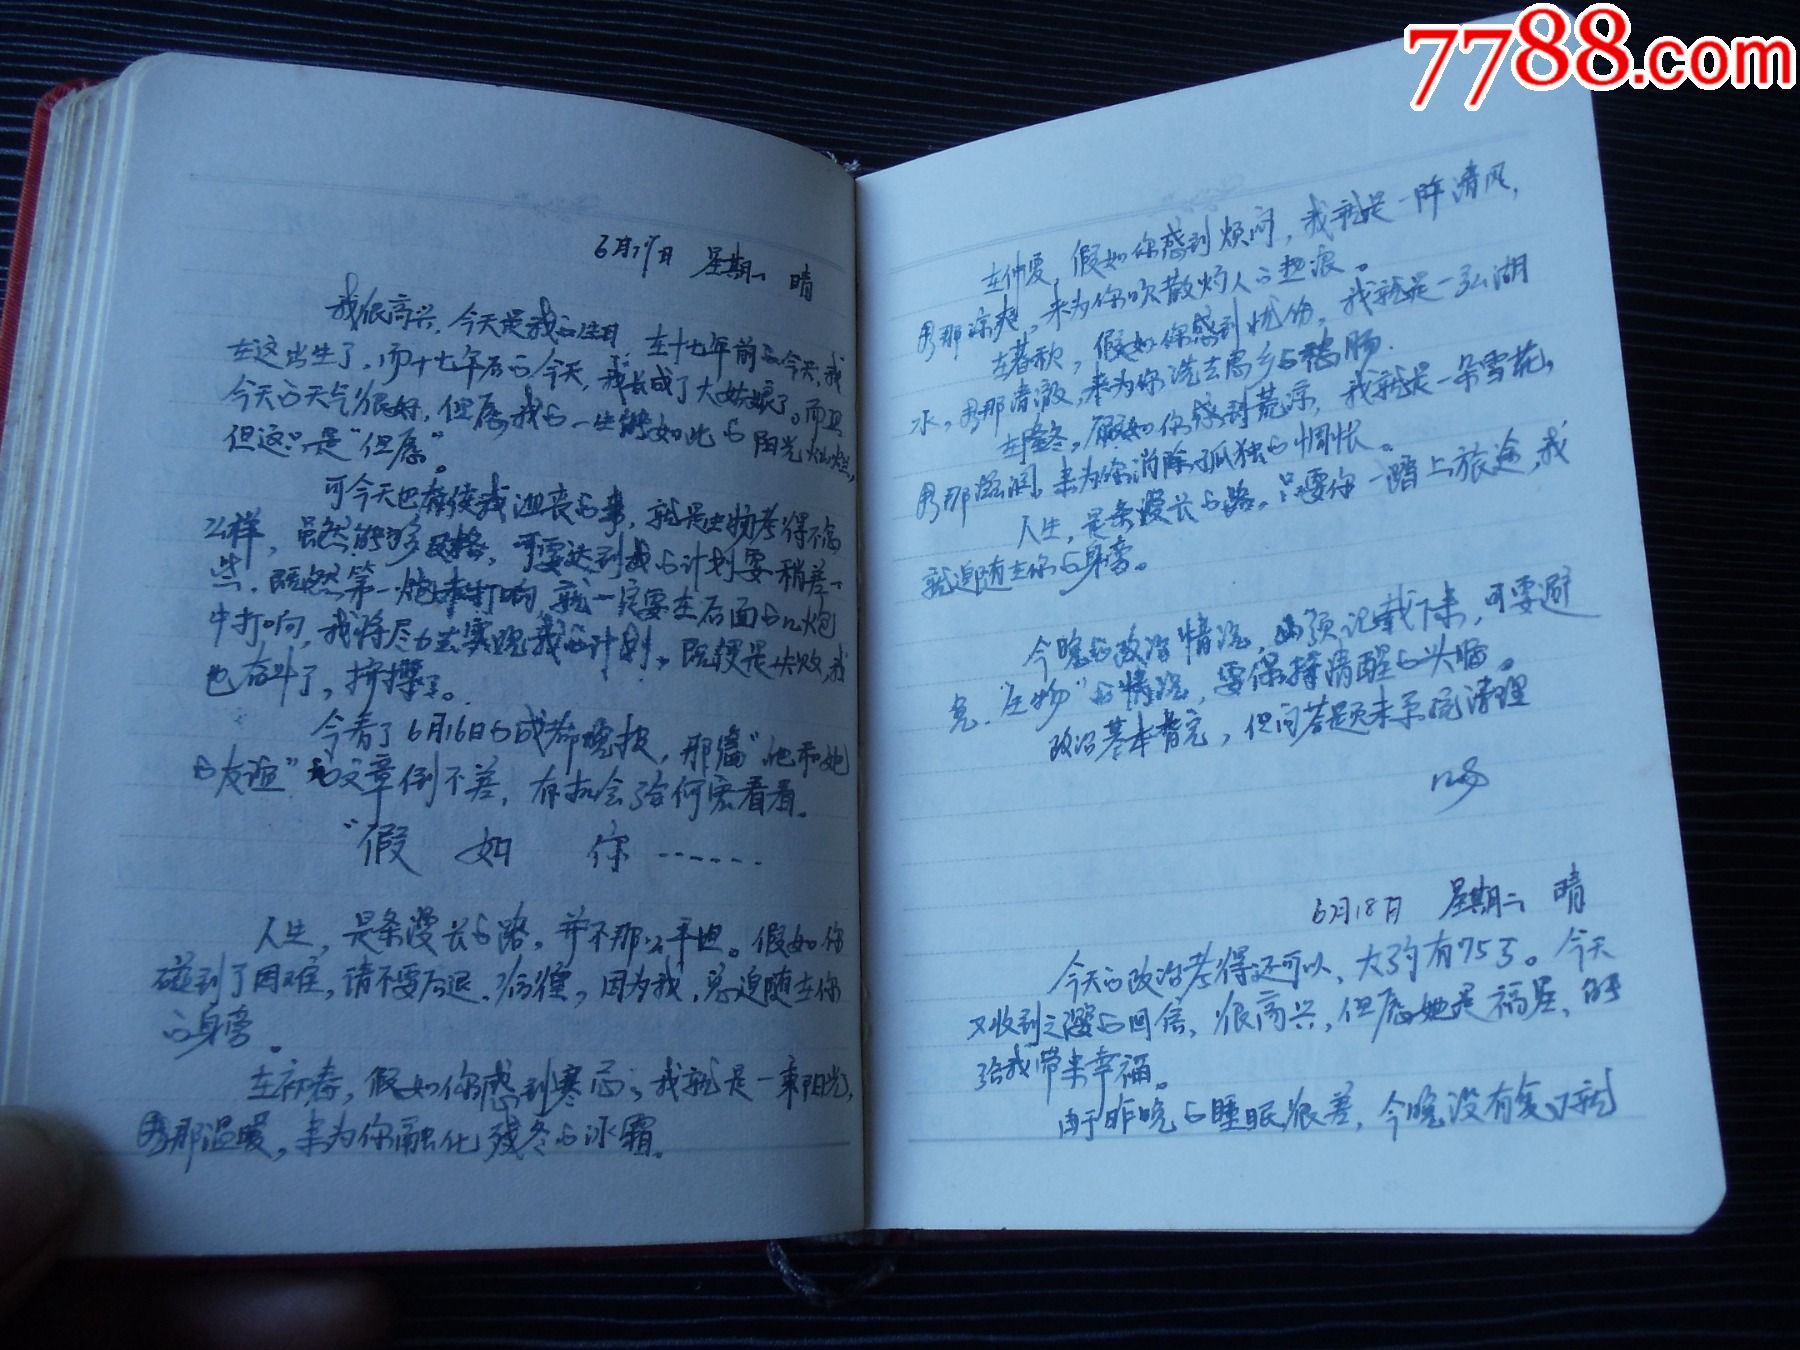 7788.com
6月17日 星期一 晴
我很高兴,今天是我的生日,在十七年前的今天,我
在这出生了,而十七年后的今天,我长成了大姑娘了。而且
今天的天气很好,但愿我的一生能如此的阳光灿烂,
但这只是“但愿”。
可今天也有使我沮丧的事,就是生物考得不怎
么样,虽然能够及格,可要达到我的计划要稍差一
些,既然第一炮未打响,就一定要在后面的几炮
中打响,我将尽力去实现我的计划,既便是失败,我
也奋斗了,拼搏了。
今看了6月16日的成都晚报,那篇“他和她
的友谊”的文章倒不差,有机会给何宏看看。
“假如你……
人生,是条漫长的路,并不那么平坦。假如你
碰到了困难,请不要后退、彷徨,因为我,总追随在你
的身旁。
在初春,假如你感到寒冷,我就是一束阳光,
用那温暖,来为你融化残冬的冰霜。
在仲夏,假如你感到烦闷,我就是一阵清风,
用那凉爽,来为你吹散灼人的热浪。
在暮秋,假如你感到忧伤,我就是一弘湖
水,用那清澈,来为你洗去离乡的愁肠.
在隆冬,假如你感到荒凉,我就是一朵雪花,
用那滋润,来为你消除孤独的惆怅。
人生,是条漫长的路。只要你一踏上旅途,我
就追随在你的身旁。
今晚的政治情况,必须记载下来,可要避
免“生物”的情况,要保持清醒的头脑。
政治基本看完,但问答题未系统清理
6月18日 星期二 晴
今天的政治考得还可以,大约有75了。今天
又收到之婆的回信,很高兴,但愿她是福星,能
给我带来幸福。
由于昨晚的睡眠很差,今晚没有复习就